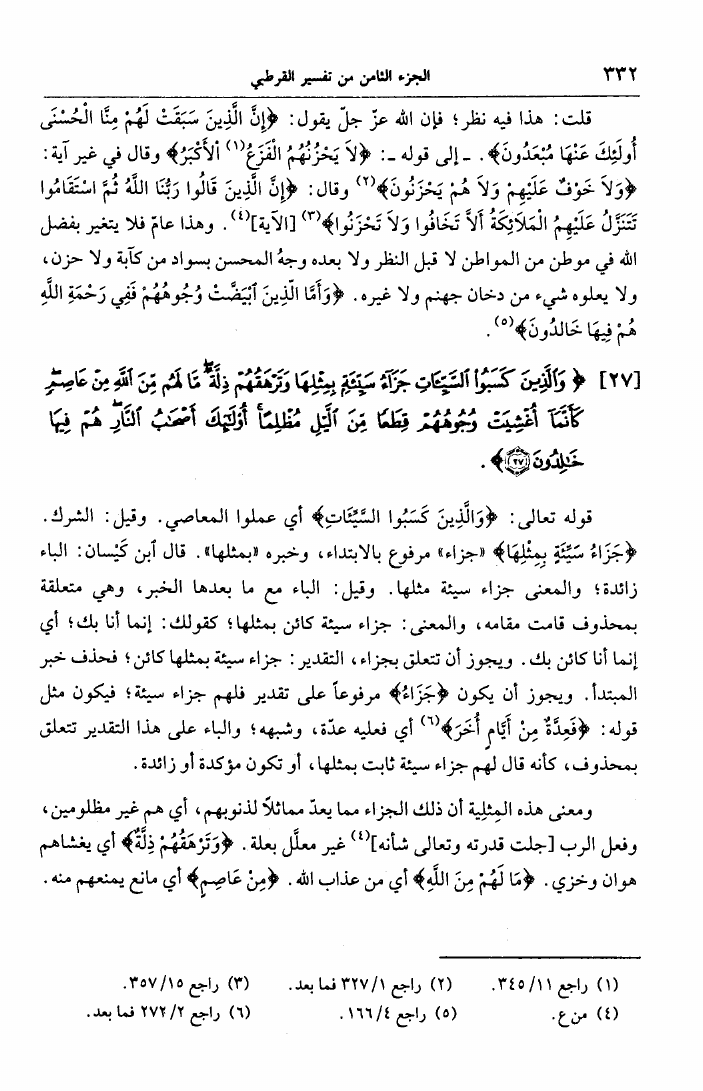 ٣٣٢ الجزء الثامن من تفسير القرطبي
قلت: هذا فيه نظر؛ فإن الله عزّ جلّ يقول: ﴿إِنَّ الَّذِينَ سَبَقَتْ لَهُمْ مِنَّا الْحُسْنَى
أُولَئِكَ عَنْهَا مُبْعَدُونَ﴾. ـ إلى قوله ـ: ﴿لاَ يَحْزُنُهُمُ الْفَزَعُ(١) الأَكْبَرُ﴾ وقال في غير آية:
﴿وَلاَ خَوْفٌ عَلَيْهِمْ وَلاَ هُمْ يَحْزَنُونَ﴾(٢) وقال: ﴿إِنَّ الَّذِينَ قَالُوا رَبُّنَا اللَّهُ ثُمَّ اسْتَقَامُوا
تَتَنَزَّلُ عَلَيْهِمُ الْمَلاَئِكَةُ أَلاَّ تَخَافُوا وَلاَ تَحْزَنُوا﴾(٣) [الآية](٤). وهذا عامّ فلا يتغير بفضل
الله في موطن من المواطن لا قبل النظر ولا بعده وجهُ المحسن بسواد من كآبة ولا حزن،
ولا يعلوه شيء من دخان جهنم ولا غيره. ﴿وَأَمَّا الَّذِينَ ٱبْيَضَّتْ وُجُوهُهُمْ فَفِي رَحْمَةِ اللَّهِ
هُمْ فِيهَا خَالدُونَ﴾(٥).
[٢٧] ﴿وَالَّذِينَ كَسَبُوا۟ ٱلسَّيِّـَٔاتِ جَزَآءُ سَيِّئَةٍۭ بِمِثْلِهَا وَتَرْهَقُهُمْ ذِلَّةٌ ۖ مَّا لَهُم مِّنَ ٱللَّهِ مِنْ عَاصِمٍ ۖ
كَأَنَّمَآ أُغْشِيَتْ وُجُوهُهُمْ قِطَعًا مِّنَ ٱلَّيْلِ مُظْلِمًا ۚ أُو۟لَـٰٓئِكَ أَصْحَـٰبُ ٱلنَّارِ ۖ هُمْ فِيهَا
خَـٰلِدُونَ ٢٧﴾.
قوله تعالى: ﴿وَالَّذِينَ كَسَبُوا السَّيِّئَاتِ﴾ أي عملوا المعاصي. وقيل: الشرك.
﴿جَزَاءُ سَيِّئَةٍ بِمِثْلِهَا﴾ «جزاء» مرفوع بالابتداء، وخبره «بمثلها». قال ٱبن كَيْسان: الباء
زائدة؛ والمعنى جزاء سيئة مثلها. وقيل: الباء مع ما بعدها الخبر، وهي متعلقة
بمحذوف قامت مقامه، والمعنى: جزاء سيئة كائن بمثلها؛ كقولك: إنما أنا بك؛ أي
إنما أنا كائن بك. ويجوز أن تتعلق بجزاء، التقدير: جزاء سيئة بمثلها كائن؛ فحذف خبر
المبتدأ. ويجوز أن يكون ﴿جَزَاءُ﴾ مرفوعاً على تقدير فلهم جزاء سيئة؛ فيكون مثل
قوله: ﴿فَعِدَّةٌ مِنْ أَيَّامٍ أُخَرَ﴾(٦) أي فعليه عدّة، وشبهه؛ والباء على هذا التقدير تتعلق
بمحذوف، كأنه قال لهم جزاء سيئة ثابت بمثلها، أو تكون مؤكدة أو زائدة.
ومعنى هذه المِثلِية أن ذلك الجزاء مما يعدّ مماثلاً لذنوبهم، أي هم غير مظلومين،
وفعل الرب [جلت قدرته وتعالى شأنه](٤) غير معلّل بعلة. ﴿وَتَرْهَقُهُمْ ذِلَّةٌ﴾ أي يغشاهم
هوان وخزي. ﴿مَا لَهُمْ مِنَ اللَّهِ﴾ أي من عذاب الله. ﴿مِنْ عَاصِمٍ﴾ أي مانع يمنعهم منه.
(١) راجع ٣٤٥/١١. (٢) راجع ٣٢٧/١ فما بعد. (٣) راجع ٣٥٧/١٥.
(٤) من ع. (٥) راجع ١٦٦/٤. (٦) راجع ٢٧٢/٢ فما بعد.